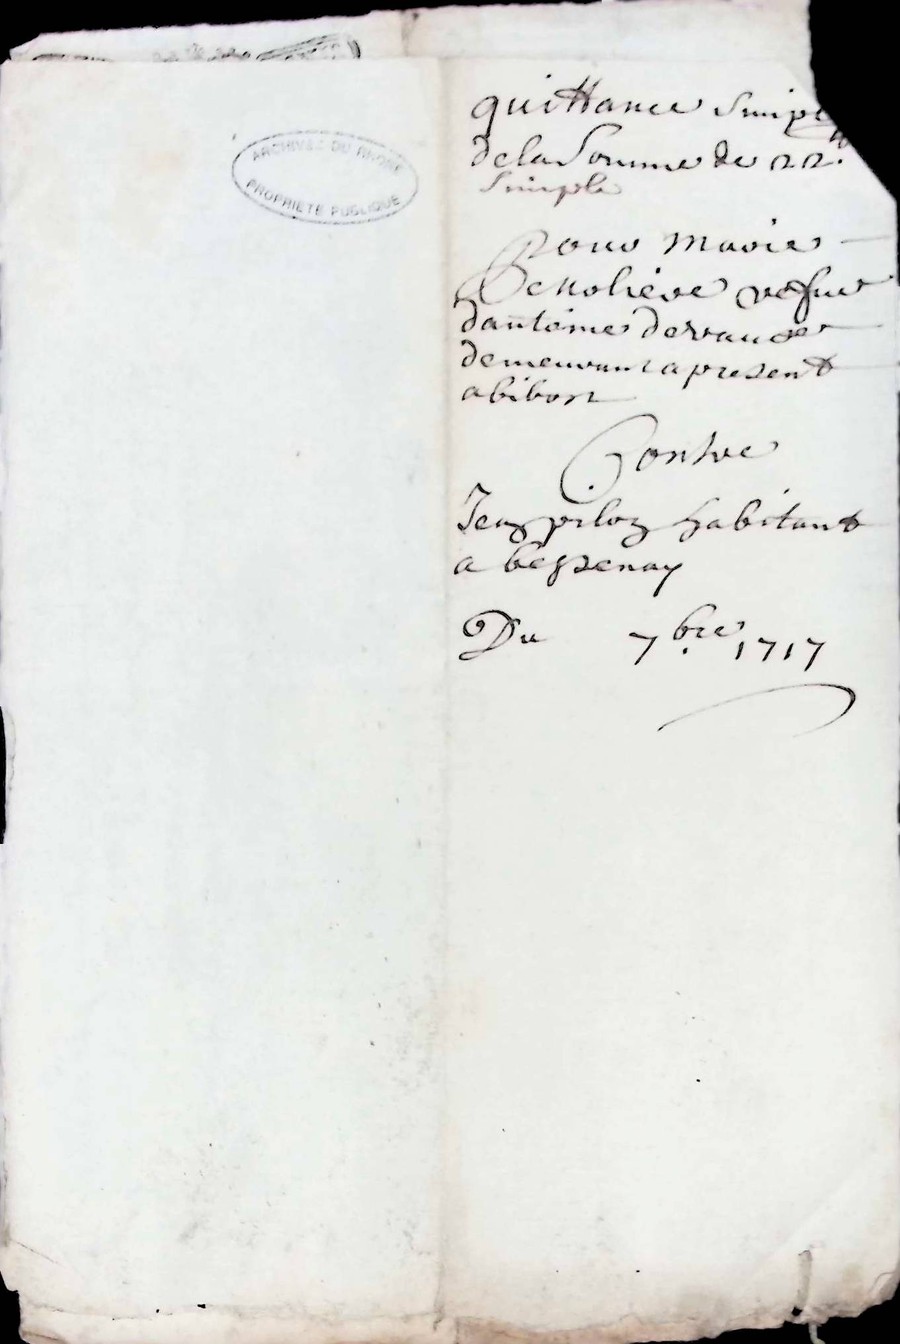 ARCHIVES DU RHONE
PROPRIETE PUBLIQUE
quittance simple
dela Somme de 22.
simple
Pour marie
vefue
dantoine
demeurant a present
abibost
Contre
Jean pilon habitant
a bessenay
Du 7.bre 1717